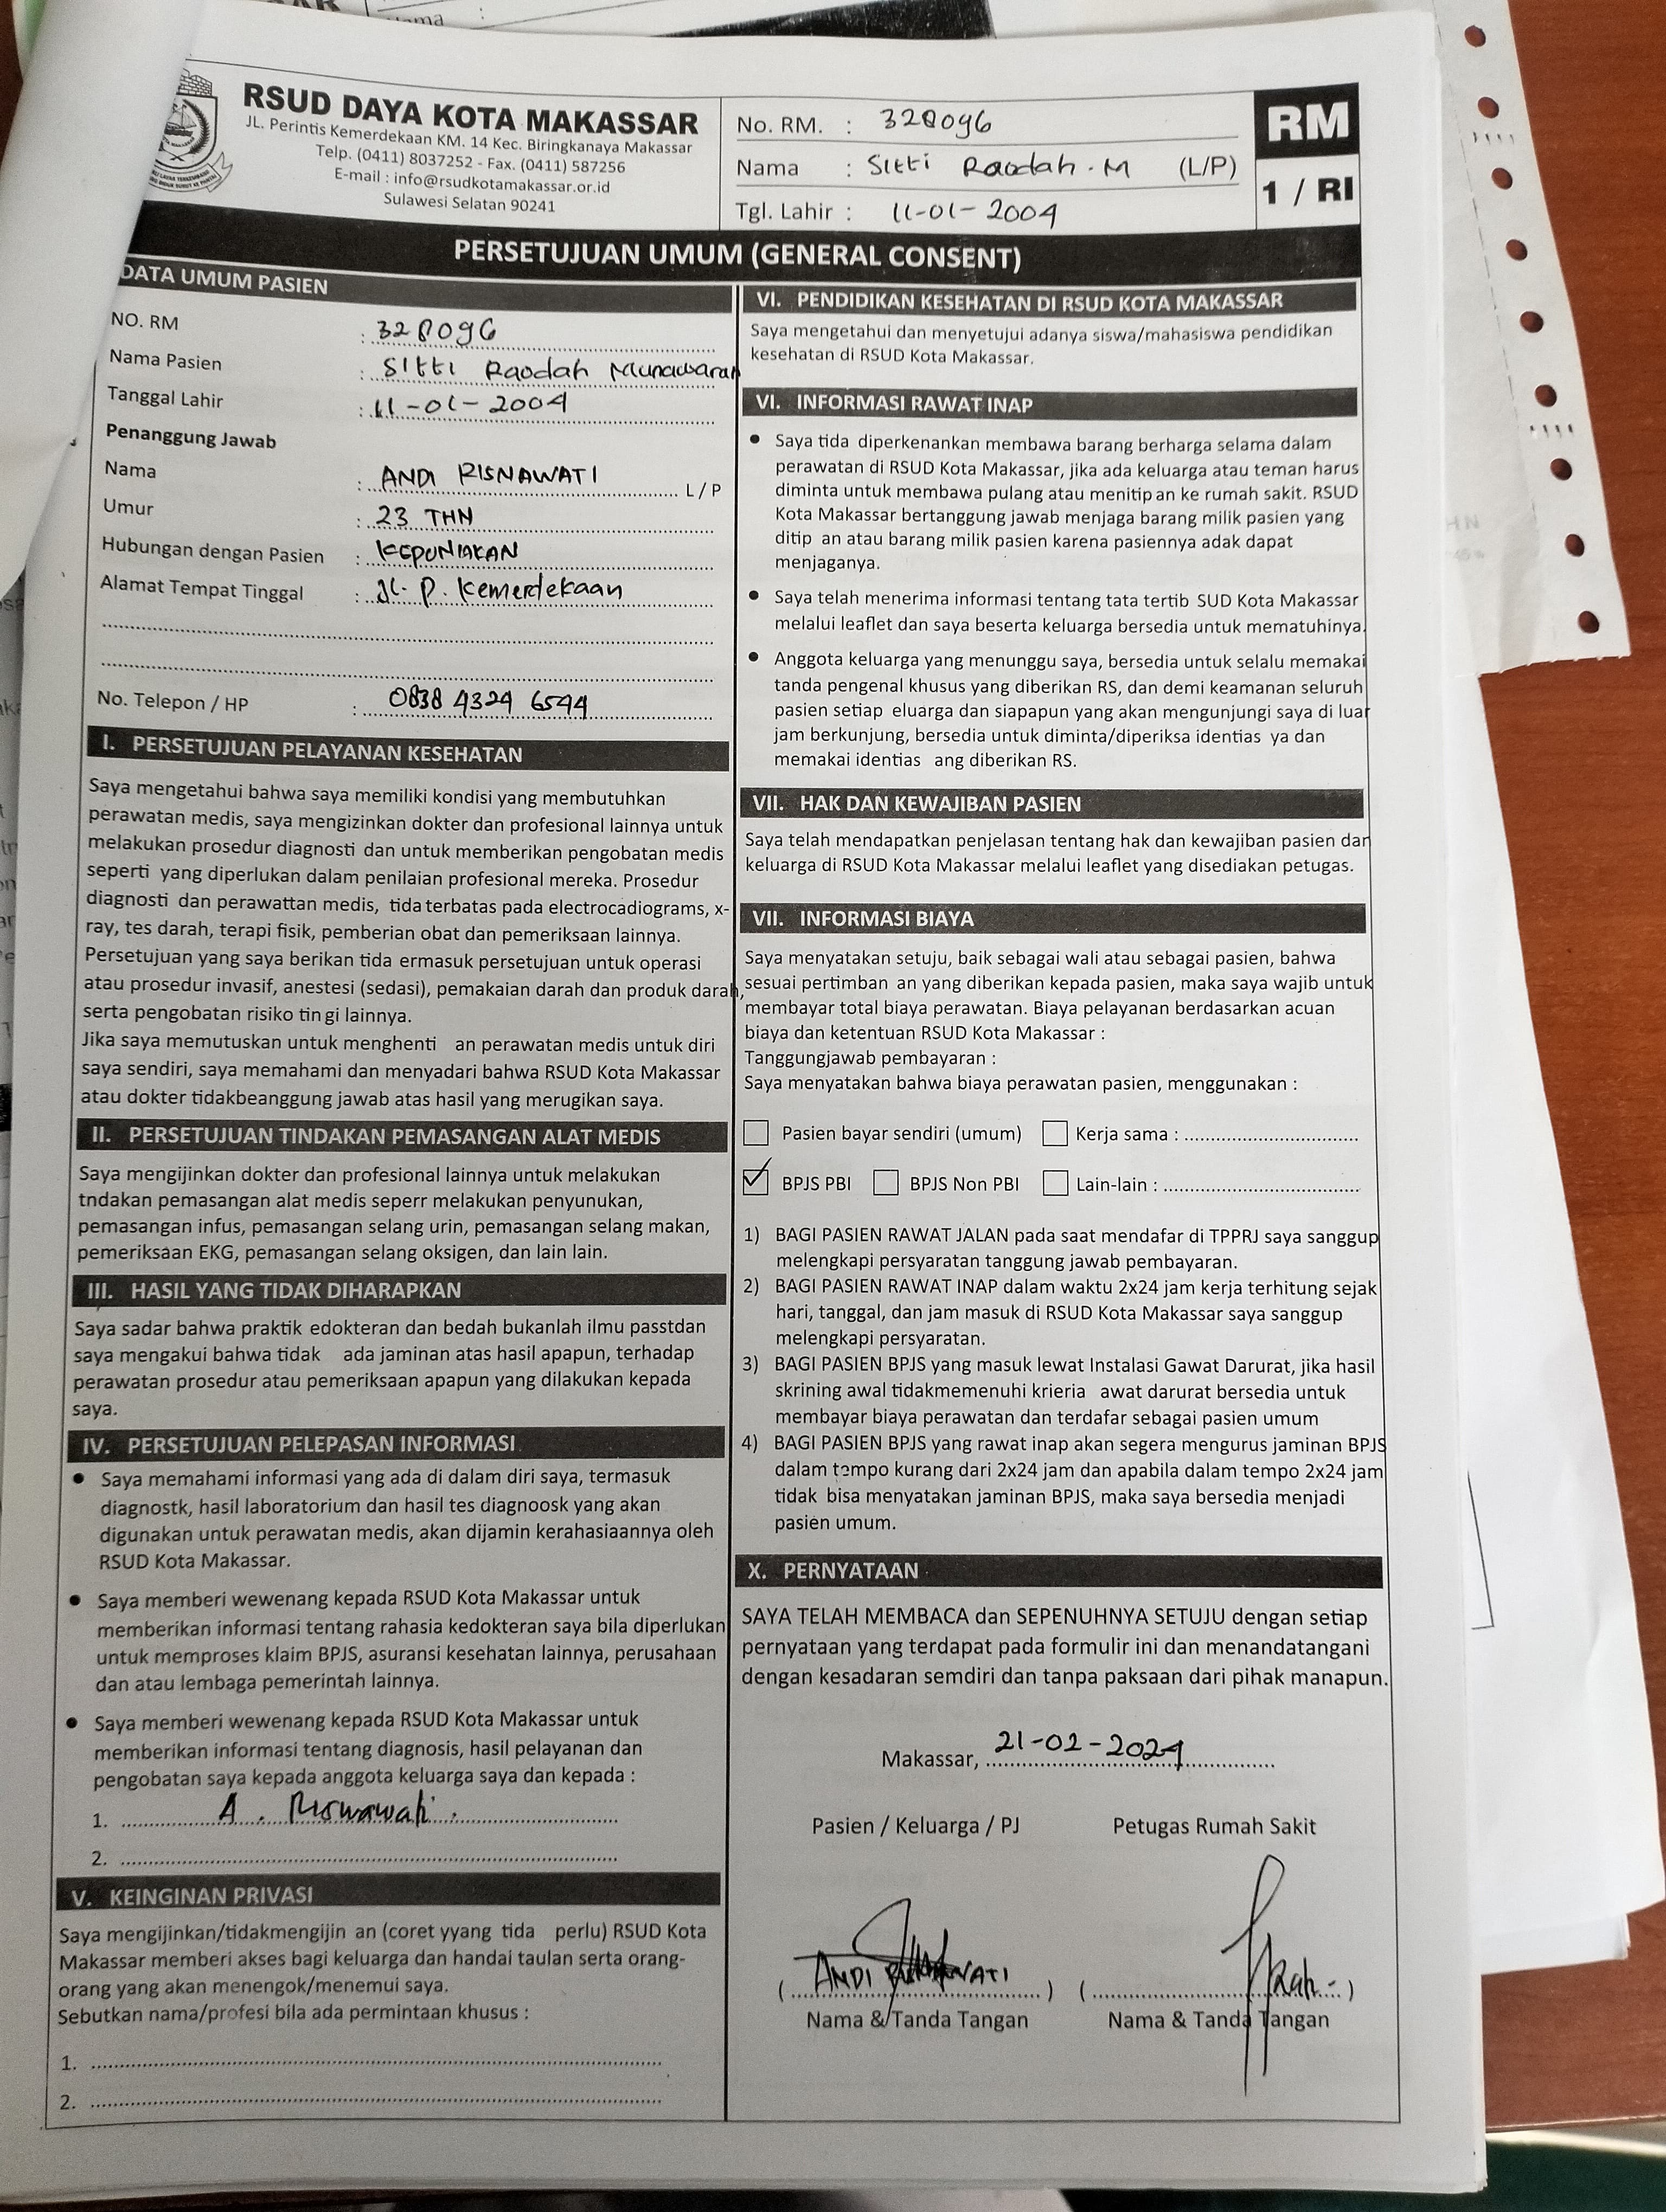 RSUD DAYA KOTA MAKASSAR
JL. Perintis Kemerdekaan KM. 14 Kec. Biringkanaya Makassar
Telp. (0411) 8037252 - Fax. (0411) 587256
E-mail : info@rsudkotamakassar.or.id
Sulawesi Selatan 90241
No. RM. : 328096
Nama : Sitti Raodah . M (L/P)
Tgl. Lahir : 11-01-2004
RM
1 / RI
PERSETUJUAN UMUM (GENERAL CONSENT)
DATA UMUM PASIEN
NO. RM : 328096
Nama Pasien : Sitti Raodah Munawarah
Tanggal Lahir : 11-01-2004
Penanggung Jawab
Nama : ANDI RISNAWATI L / P
Umur : 23 THN
Hubungan dengan Pasien : KEPONAKAN
Alamat Tempat Tinggal : Jl. P. Kemerdekaan
No. Telepon / HP : 0838 4324 6544
I. PERSETUJUAN PELAYANAN KESEHATAN
Saya mengetahui bahwa saya memiliki kondisi yang membutuhkan
perawatan medis, saya mengizinkan dokter dan profesional lainnya untuk
melakukan prosedur diagnosti dan untuk memberikan pengobatan medis
seperti yang diperlukan dalam penilaian profesional mereka. Prosedur
diagnosti dan perawattan medis, tida terbatas pada electrocadiograms, x-
ray, tes darah, terapi fisik, pemberian obat dan pemeriksaan lainnya.
Persetujuan yang saya berikan tida ermasuk persetujuan untuk operasi
atau prosedur invasif, anestesi (sedasi), pemakaian darah dan produk darah,
serta pengobatan risiko tin gi lainnya.
Jika saya memutuskan untuk menghenti an perawatan medis untuk diri
saya sendiri, saya memahami dan menyadari bahwa RSUD Kota Makassar
atau dokter tidakbeanggung jawab atas hasil yang merugikan saya.
II. PERSETUJUAN TINDAKAN PEMASANGAN ALAT MEDIS
Saya mengijinkan dokter dan profesional lainnya untuk melakukan
tndakan pemasangan alat medis seperr melakukan penyunukan,
pemasangan infus, pemasangan selang urin, pemasangan selang makan,
pemeriksaan EKG, pemasangan selang oksigen, dan lain lain.
III. HASIL YANG TIDAK DIHARAPKAN
Saya sadar bahwa praktik edokteran dan bedah bukanlah ilmu passtdan
saya mengakui bahwa tidak ada jaminan atas hasil apapun, terhadap
perawatan prosedur atau pemeriksaan apapun yang dilakukan kepada
saya.
IV. PERSETUJUAN PELEPASAN INFORMASI
• Saya memahami informasi yang ada di dalam diri saya, termasuk
diagnostk, hasil laboratorium dan hasil tes diagnoosk yang akan
digunakan untuk perawatan medis, akan dijamin kerahasiaannya oleh
RSUD Kota Makassar.
• Saya memberi wewenang kepada RSUD Kota Makassar untuk
memberikan informasi tentang rahasia kedokteran saya bila diperlukan
untuk memproses klaim BPJS, asuransi kesehatan lainnya, perusahaan
dan atau lembaga pemerintah lainnya.
• Saya memberi wewenang kepada RSUD Kota Makassar untuk
memberikan informasi tentang diagnosis, hasil pelayanan dan
pengobatan saya kepada anggota keluarga saya dan kepada :
1. A. Risnawati
2.
V. KEINGINAN PRIVASI
Saya mengijinkan/tidakmengijin an (coret yyang tida perlu) RSUD Kota
Makassar memberi akses bagi keluarga dan handai taulan serta orang-
orang yang akan menengok/menemui saya.
Sebutkan nama/profesi bila ada permintaan khusus :
1.
2.
VI. PENDIDIKAN KESEHATAN DI RSUD KOTA MAKASSAR
Saya mengetahui dan menyetujui adanya siswa/mahasiswa pendidikan
kesehatan di RSUD Kota Makassar.
VI. INFORMASI RAWAT INAP
• Saya tida diperkenankan membawa barang berharga selama dalam
perawatan di RSUD Kota Makassar, jika ada keluarga atau teman harus
diminta untuk membawa pulang atau menitip an ke rumah sakit. RSUD
Kota Makassar bertanggung jawab menjaga barang milik pasien yang
ditip an atau barang milik pasien karena pasiennya adak dapat
menjaganya.
• Saya telah menerima informasi tentang tata tertib SUD Kota Makassar
melalui leaflet dan saya beserta keluarga bersedia untuk mematuhinya.
• Anggota keluarga yang menunggu saya, bersedia untuk selalu memakai
tanda pengenal khusus yang diberikan RS, dan demi keamanan seluruh
pasien setiap eluarga dan siapapun yang akan mengunjungi saya di luar
jam berkunjung, bersedia untuk diminta/diperiksa identias ya dan
memakai identias ang diberikan RS.
VII. HAK DAN KEWAJIBAN PASIEN
Saya telah mendapatkan penjelasan tentang hak dan kewajiban pasien dan
keluarga di RSUD Kota Makassar melalui leaflet yang disediakan petugas.
VII. INFORMASI BIAYA
Saya menyatakan setuju, baik sebagai wali atau sebagai pasien, bahwa
sesuai pertimban an yang diberikan kepada pasien, maka saya wajib untuk
membayar total biaya perawatan. Biaya pelayanan berdasarkan acuan
biaya dan ketentuan RSUD Kota Makassar :
Tanggungjawab pembayaran :
Saya menyatakan bahwa biaya perawatan pasien, menggunakan :
☐ Pasien bayar sendiri (umum) ☐ Kerja sama :
☑ BPJS PBI ☐ BPJS Non PBI ☐ Lain-lain :
1) BAGI PASIEN RAWAT JALAN pada saat mendafar di TPPRJ saya sanggup
melengkapi persyaratan tanggung jawab pembayaran.
2) BAGI PASIEN RAWAT INAP dalam waktu 2x24 jam kerja terhitung sejak
hari, tanggal, dan jam masuk di RSUD Kota Makassar saya sanggup
melengkapi persyaratan.
3) BAGI PASIEN BPJS yang masuk lewat Instalasi Gawat Darurat, jika hasil
skrining awal tidakmemenuhi krieria awat darurat bersedia untuk
membayar biaya perawatan dan terdafar sebagai pasien umum
4) BAGI PASIEN BPJS yang rawat inap akan segera mengurus jaminan BPJS
dalam tempo kurang dari 2x24 jam dan apabila dalam tempo 2x24 jam
tidak bisa menyatakan jaminan BPJS, maka saya bersedia menjadi
pasien umum.
X. PERNYATAAN
SAYA TELAH MEMBACA dan SEPENUHNYA SETUJU dengan setiap
pernyataan yang terdapat pada formulir ini dan menandatangani
dengan kesadaran semdiri dan tanpa paksaan dari pihak manapun.
Makassar, 21-02-2024
Pasien / Keluarga / PJ Petugas Rumah Sakit
( ANDI RISNAWATI ) ( )
Nama & Tanda Tangan Nama & Tanda Tangan